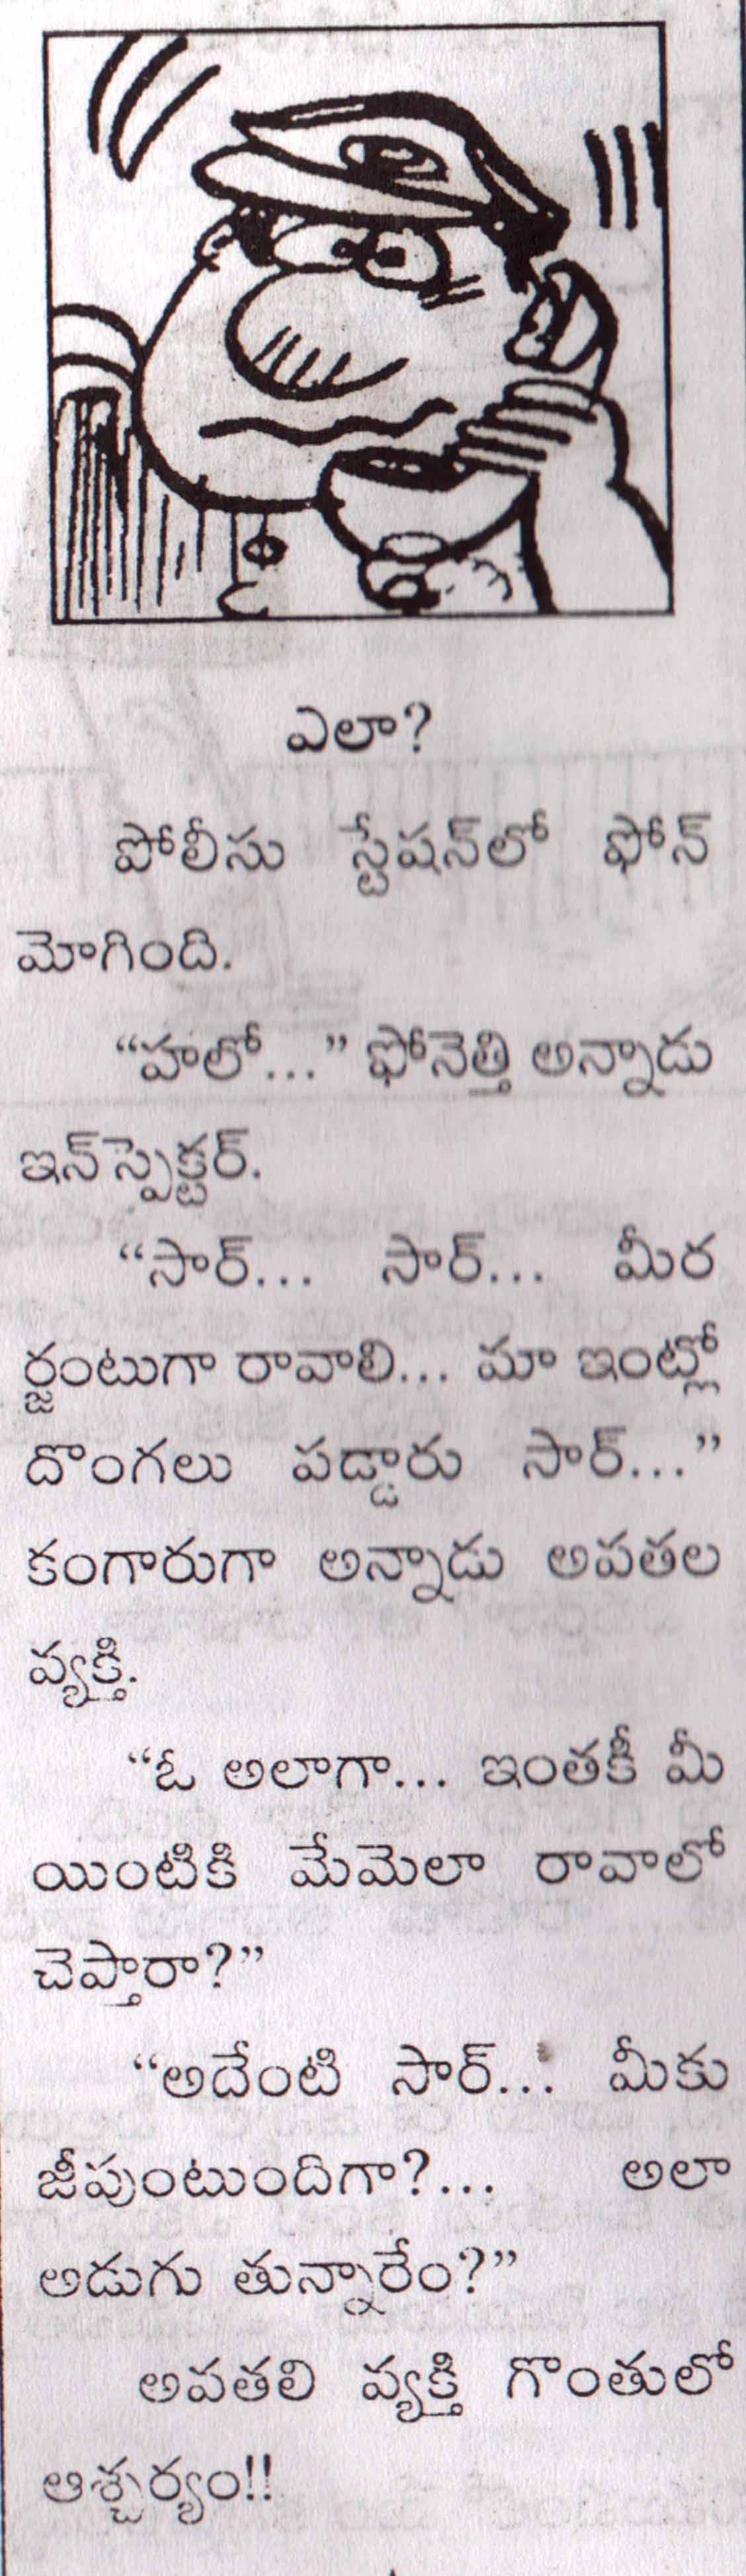 ఎలా?
పోలీసు స్టేషన్‌లో ఫోన్
మోగింది.
“హలో...” ఫోనెత్తి అన్నాడు
ఇన్‌స్పెక్టర్.
“సార్... సార్... మీర
ర్జంటుగా రావాలి... మా ఇంట్లో
దొంగలు పడ్డారు సార్...”
కంగారుగా అన్నాడు అపతల
వ్యక్తి.
“ఓ అలాగా... ఇంతకీ మీ
యింటికి మేమెలా రావాలో
చెప్తారా?”
“అదేంటి సార్... మీకు
జీపుంటుందిగా?... అలా
అడుగు తున్నారేం?”
అపతలి వ్యక్తి గొంతులో
ఆశ్చర్యం!!